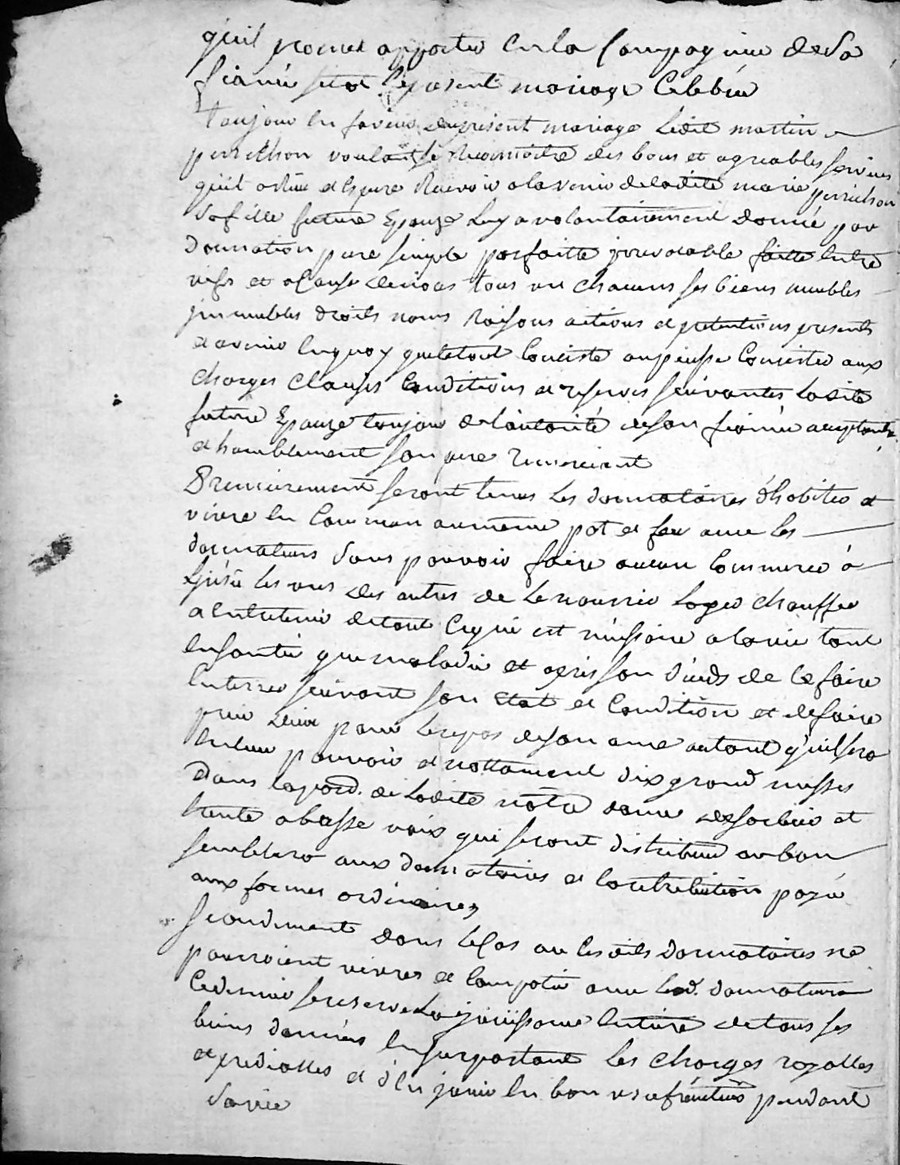 qu'il promet apporter en la Compagnie de Sa
fiancée sitot le present mariage Celebrée
Toujour en faveur du present mariage Ledit martin
perrichon voulant Se Reconnoitre des bons et agreables services
qu'il a Recu et Espere Recevoir a lavenir de ladite marie perrichon
Sa fille future Epouze Luy a volontairement donné par
donnation pure simple parfaitte jrrevocable faitte Entre
vifs et a Cause de nous tous un chacuns ses biens meubles
jmmeubles droits noms Raisons actions et pretentions presents
et avenir En quoy que le tout Conciste ou puisse Concister aux
charges Clauses Conditions et reserves suivantes Ladite
future Epouze toujour de Lautorité de son fiancé acceptante
et humblement son pere Remerciant
Premierement seront tenus Les donnataires d'habiter et
vivre En Commun au meme pot et feu avec les
donnateurs Sans pouvoir faire aucun Commerce a
Linsu les uns des autres de Le nourrir Loger Chauffer
et Entretenir de tout Ce qui est nessaire a la vie tant
En Santé que maladie et apres son deceds de le faire
Enterrer suivant son Etat et Condition et de faire
prier dieu pour le repos de son ame autant qu'il sera
En leur pouvoir et nottament dix grand messes
Dans la par. de Ladite notre dame de sorbier et
trente a basse voix qui seront distribuée au bon
semblera aux donnataires et Contribution payée
aux formes ordinaires
Secondement dans le Cas ou Lesdits donnataires ne
pourroient vivre et Compatir avec Led. donnateur
Ce dernier se reserve La jouissance Entiere de tous ses
biens donnés En Surportant les charges royalles
et predialles et d'En jouir En bon usufruitier pendant
Sa vie